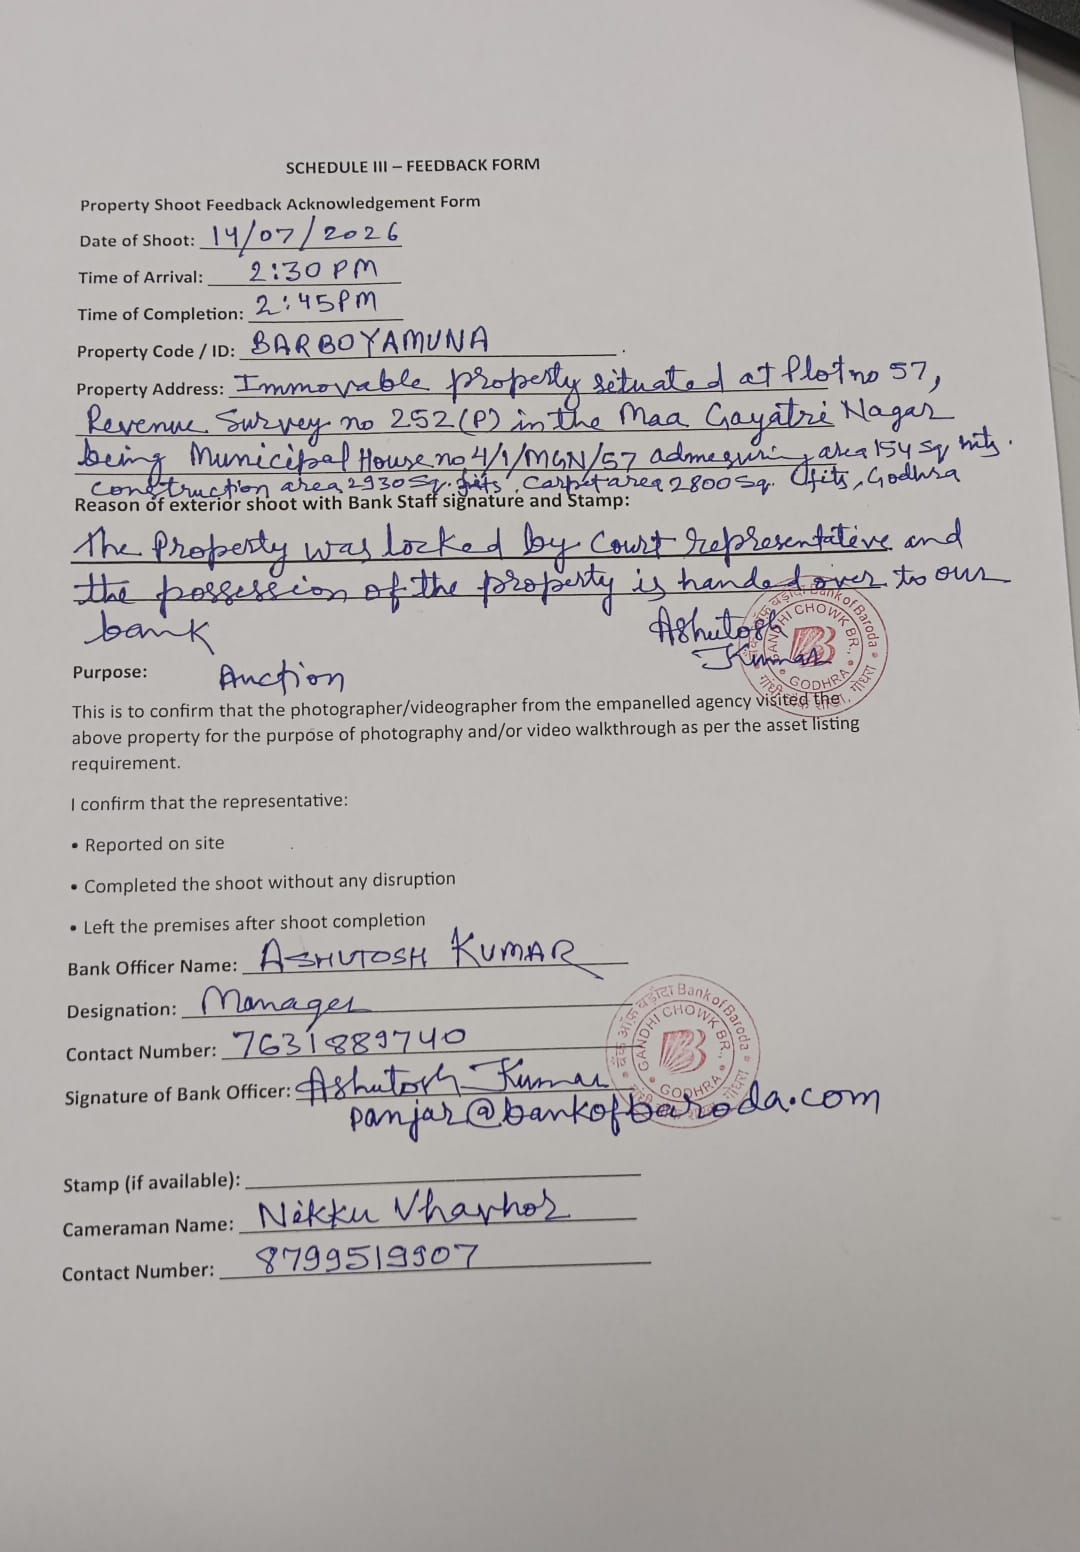 SCHEDULE III – FEEDBACK FORM
Property Shoot Feedback Acknowledgement Form
Date of Shoot: 14/07/2026
Time of Arrival: 2:30 PM
Time of Completion: 2:45PM
Property Code / ID: BARBOYAMUNA
Property Address: Immovable property situated at Plot no 57,
Revenue Survey no 252(P) in the Maa Gayatri Nagar
being Municipal House no 4/1/MGN/57 admesuring area 154 sq mts.
Construction area 2930 Sq. fits, Carpet area 2800 Sq. fits, Godhra
Reason of exterior shoot with Bank Staff signature and Stamp:
The Property was locked by Court representative and
the possession of the property is handed over to our
bank
Ashutosh
Kumar
बैंक ऑफ़ बड़ौदा Bank of Baroda
GANDHI CHOWK BR.,
GODHRA
Purpose: Auction
This is to confirm that the photographer/videographer from the empanelled agency visited the
above property for the purpose of photography and/or video walkthrough as per the asset listing
requirement.
I confirm that the representative:
• Reported on site
• Completed the shoot without any disruption
• Left the premises after shoot completion
Bank Officer Name: ASHUTOSH KUMAR
Designation: Manager
Contact Number: 7631889740
Signature of Bank Officer: Ashutosh Kumar
panjar@bankofbaroda.com
बैंक ऑफ़ बड़ौदा Bank of Baroda
GANDHI CHOWK BR.,
GODHRA
Stamp (if available):
Cameraman Name: Nikku
Contact Number: 8799519907